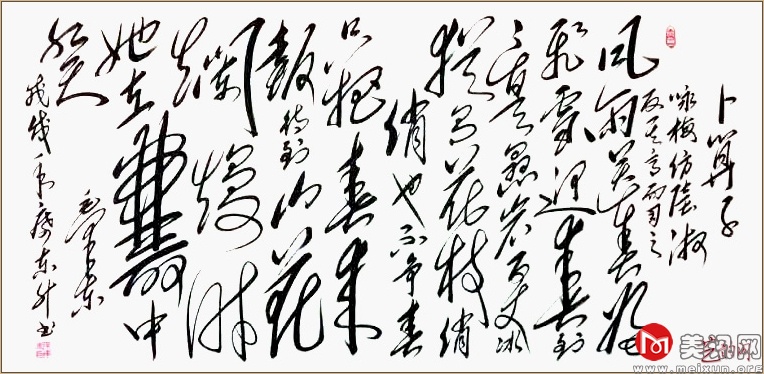 卜算子
咏梅仿陸
反其意而用之
风雨送春归
飞雪迎春到
已是悬崖百丈冰
犹有花枝俏
俏也不争春
只把春来
报待到山花
烂漫时
她在丛中
笑
毛泽东
戊戌年东升书
美讯网
www.meixun.org